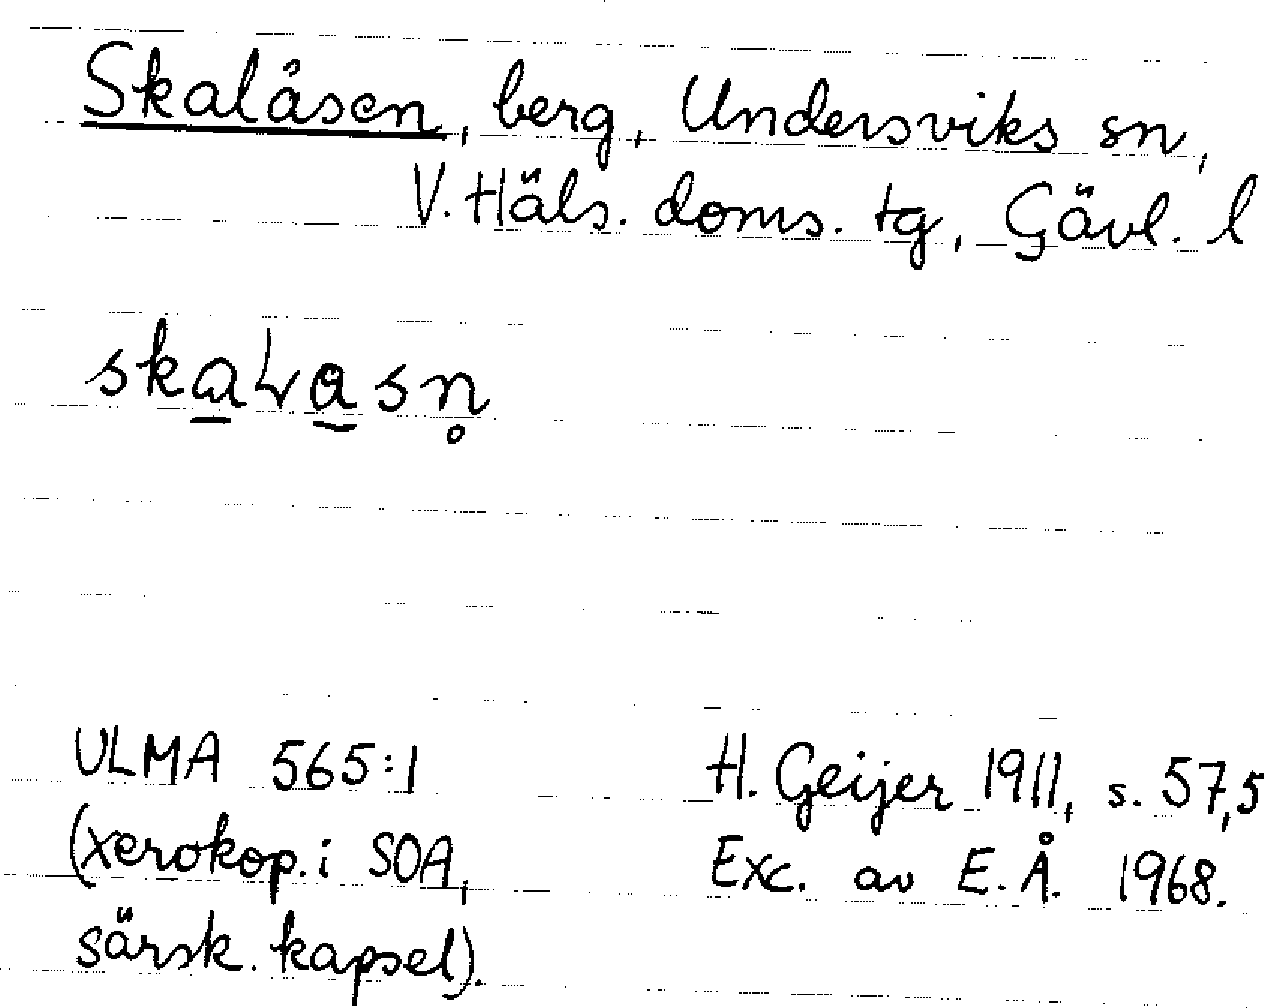 Skalåsen, berg, Undersviks sn,
V. Häls. doms. tg, Gävl. l
ULMA 565:1
H. Geijer 1911, s. 57,5
(xerokop. i SOA,
Exc. av E. Å. 1968.
särsk. kapsel).